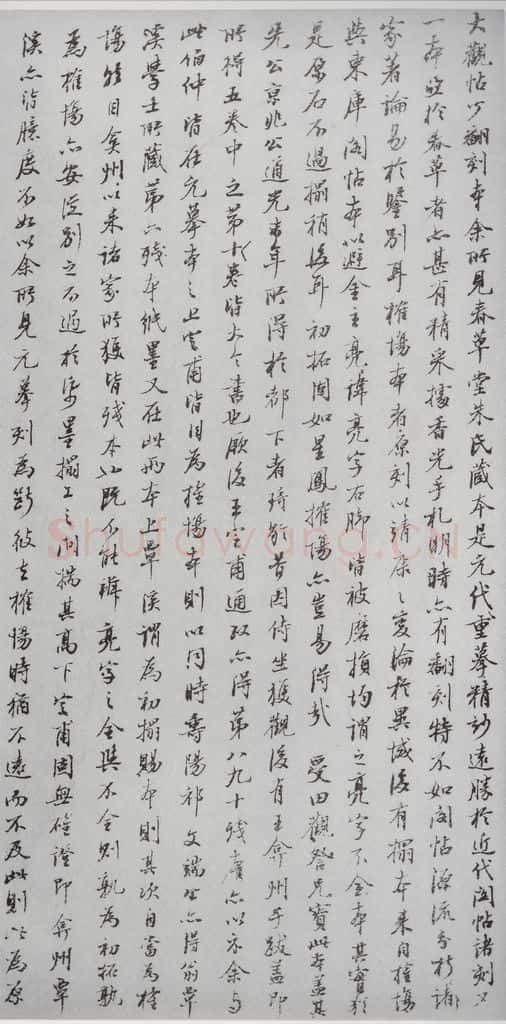 大觀帖有翻刻本余所見春草堂朱氏藏本是元代重摹精妙遠勝於近代閣帖諸刻又
一本跋於春草者亦甚有精采據香光手札明時亦有翻刻特不如閣帖源流分析諸
家著論易於鑒別耳榷場本者原刻以靖康之變淪於異域後有搨本來自榷場
與東庫閣帖本以避金主亮諱亮字右腳皆被磨損均謂之亮字不全本其實彩
是原石不過搨稍後耳初拓固如星鳳榷場亦豈易得哉受田觀詧兄寶此本蓋其
先公京兆公道光年所得於都下者琦齡昔因侍坐獲觀後有王弇州手跋蓋即
所得五卷中之第卷皆大令書也厥後王甫通政亦得第八九十殘賡亦以示余與
此伯仲皆在元摹本之上定甫皆目為榷場本則以同時壽陽祁文端公亦得翁覃
溪學士所藏第六殘本紙墨又在此兩本上覃溪謂為初搨賜本則其次自當為榷
場然自弇州以來諸家所獲皆殘本既不能辨亮字之全與不全則孰為初拓孰
為榷場亦安從別之不過於紙墨搨工之間揣其高下定甫固無確證即弇州覃
溪亦皆臆度不如以余所見元摹刻為斷彼去榷場時猶不遠而不及此則此為原
Shufawang.cn